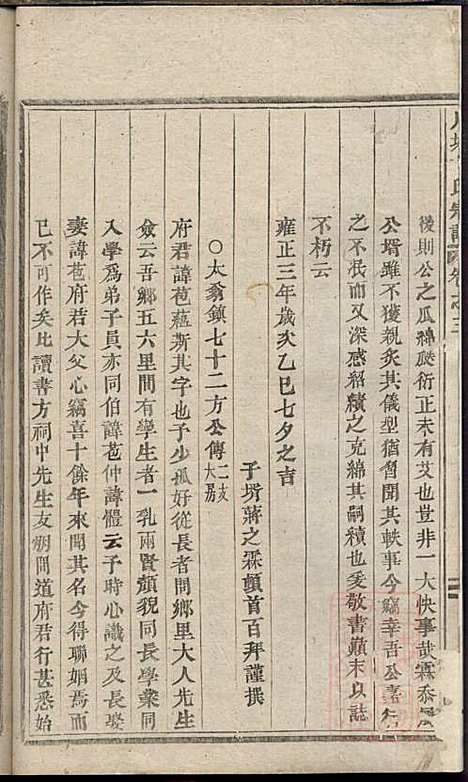 後則公之瓜綿瓞衍正未有艾也豈非一大快事哉霖忝屬
公壻雖不獲親炙其儀型猶習聞其軼事今竊幸吾公壽
之不泯而又深感紹續之克綿其嗣續也爰敬書巔末以誌
不朽云
雍正三年歲次乙巳七夕之吉
子壻蔣之霖頓首百拜謹撰
○太翁鎮七十二方公傳二支大房
府君諱苞蘊斯其字也予少孤好從長者問鄉里大人先生
僉云吾鄉五六里間有孿生者一乳兩賢頹貌同長學業同
入學爲弟子員亦同伯諱苞仲諱體云予時心識之及長娶
妻諱苞府君大父心竊喜十餘年來聞其名今得聯姻焉而
已不可作矣比讀書方祠中先生友朋間道府君行甚悉始